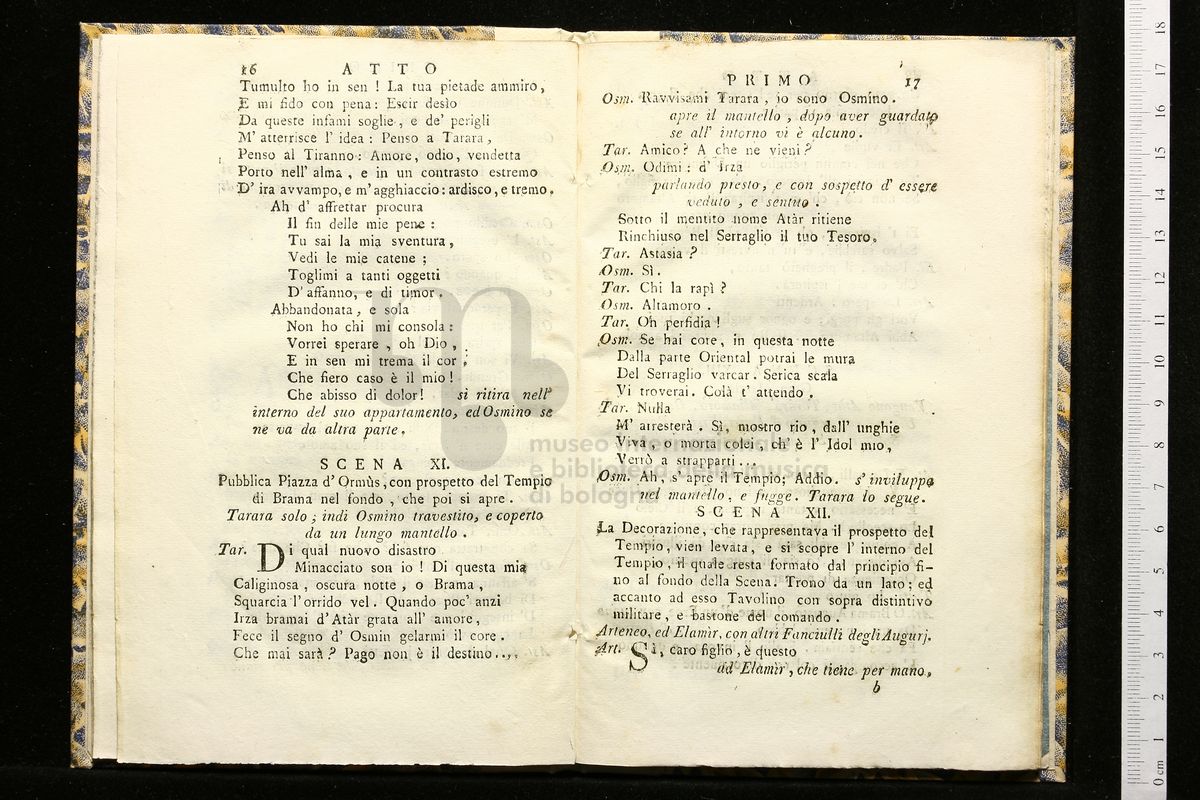 16 ATTO
Tumulto ho in sen ! La tua pietade ammiro,
E mi fido con pena: Escir desìo
Da queste infami soglie, e de' perigli
M' atterrisce l' idea : Penso a Tarara,
Penso al Tiranno: Amore, odio, vendetta
Porto nell' alma, e in un contrasto estremo
D' ira avvampo, e m' agghiaccio: ardisco, e tremo.
Ah d' affrettar procura
Il fin delle mie pene :
Tu sai la mia sventura,
Vedi le mie catene ;
Toglimi a tanti oggetti
D' affanno, e di timor.
Abbandonata, e sola
Non ho chi mi consola :
Vorrei sperare, oh Dio,
E in sen mi trema il cor ;
Che fiero caso è il mio !
Che abisso di dolor ! si ritira nell'
interno del suo appartamento, ed Osmino se
ne va da altra parte.
SCENA XI.
Pubblica Piazza d' Ormùs, con prospetto del Tempio
di Brama nel fondo, che poi si apre.
Tarara solo ; indi Osmino travestito, e coperto
da un lungo mantello.
Tar. Di qual nuovo disastro
Minacciato son io ! Di questa mia
Caliginosa, oscura notte, o Brama,
Squarcia l' orrido vel. Quando poc' anzi
Irza bramai d' Atàr grata all' amore,
Fece il segno d' Osmin gelarmi il core.
Che mai sarà ? Pago non è il destino....
PRIMO 17
Osm. Ravvisami Tarara, io sono Osmino.
apre il mantello, dopo aver guardato
se all' intorno vi è alcuno.
Tar. Amico ? A che ne vieni ?
Osm. Odimi : d' Irza
parlando presto, e con sospetto d' essere
veduto, e sentito.
Sotto il mentito nome Atàr ritiene
Rinchiuso nel Serraglio il tuo Tesoro.
Tar. Astasia ?
Osm. Sì.
Tar. Chi la rapì ?
Osm. Altamoro.
Tar. Oh perfidia !
Osm. Se hai core, in questa notte
Dalla parte Oriental potrai le mura
Del Serraglio varcar. Serica scala
Vi troverai. Colà t' attendo.
Tar. Nulla
M' arresterà. Sì, mostro rio, dall' unghie
Viva, o morta colei, ch' è l' Idol mio,
Verrò a strapparti...
Osm. Ah, s' apre il Tempio; Addio. s' inviluppa
nel mantello, e fugge. Tarara lo segue.
SCENA XII.
La Decorazione, che rappresentava il prospetto del
Tempio, vien levata, e si scopre l' interno del
Tempio, il quale resta formato dal principio fi-
no al fondo della Scena. Trono da un lato; ed
accanto ad esso Tavolino con sopra distintivo
militare, e bastone del comando.
Arteneo, ed Elamìr, con altri Fanciulli degli Augurj.
Art. Sì, caro figlio, è questo
ad Elamìr, che tiene per mano,
b
museo internazionale
e biblioteca della musica
di bologna
0 cm 1 2 3 4 5 6 7 8 9 10 11 12 13 14 15 16 17 18